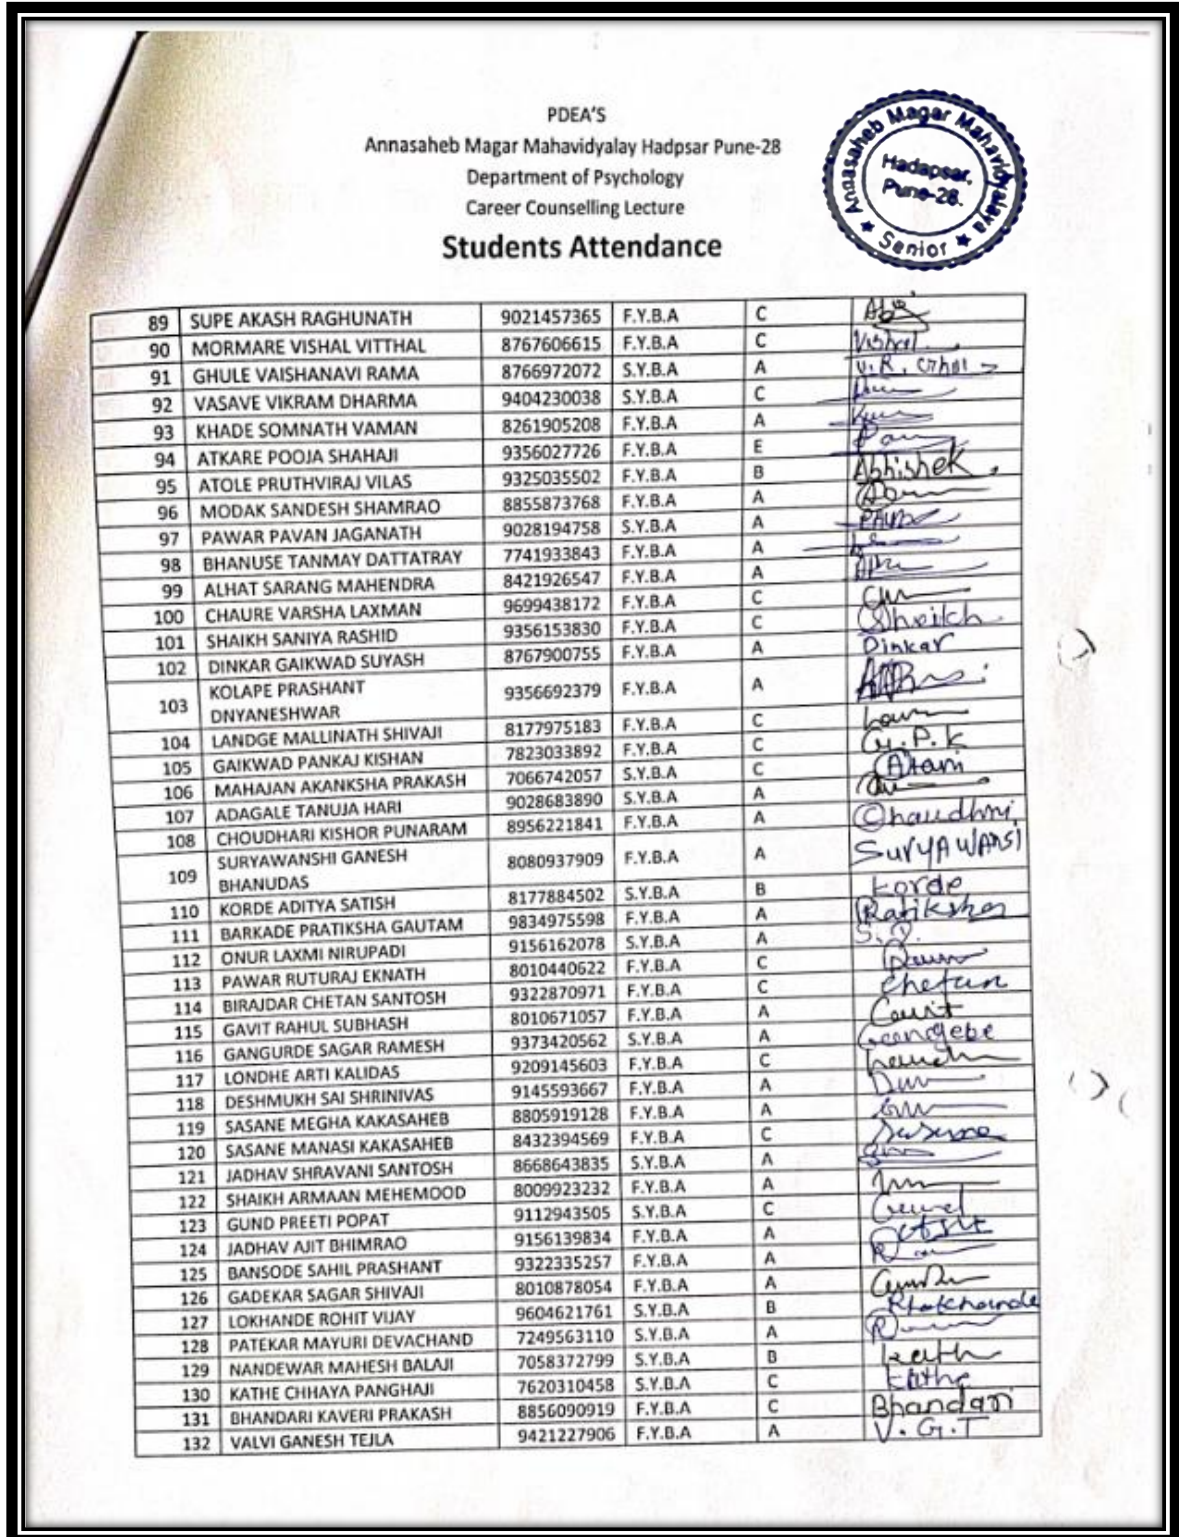 PDEA'S
Annasaheb Magar Mahavidyalay Hadpsar Pune-28
Department of Psychology
Career Counselling Lecture
Students Attendance
Annasaheb Magar Mahavidyalaya
Hadapsar,
Pune-28.
★ Senior ★
89 SUPE AKASH RAGHUNATH 9021457365 F.Y.B.A C
90 MORMARE VISHAL VITTHAL 8767606615 F.Y.B.A C Vishal
91 GHULE VAISHANAVI RAMA 8766972072 S.Y.B.A A
92 VASAVE VIKRAM DHARMA 9404230038 S.Y.B.A C
93 KHADE SOMNATH VAMAN 8261905208 F.Y.B.A A
94 ATKARE POOJA SHAHAJI 9356027726 F.Y.B.A E
95 ATOLE PRUTHVIRAJ VILAS 9325035502 F.Y.B.A B Abhishek
96 MODAK SANDESH SHAMRAO 8855873768 F.Y.B.A A
97 PAWAR PAVAN JAGANATH 9028194758 S.Y.B.A A
98 BHANUSE TANMAY DATTATRAY 7741933843 F.Y.B.A A
99 ALHAT SARANG MAHENDRA 8421926547 F.Y.B.A A
100 CHAURE VARSHA LAXMAN 9699438172 F.Y.B.A C
101 SHAIKH SANIYA RASHID 9356153830 F.Y.B.A C Sheikh
102 DINKAR GAIKWAD SUYASH 8767900755 F.Y.B.A A Dinkar
103 KOLAPE PRASHANT
DNYANESHWAR 9356692379 F.Y.B.A A
104 LANDGE MALLINATH SHIVAJI 8177975183 F.Y.B.A C
105 GAIKWAD PANKAJ KISHAN 7823033892 F.Y.B.A C G.P.K
106 MAHAJAN AKANKSHA PRAKASH 7066742057 S.Y.B.A C
107 ADAGALE TANUJA HARI 9028683890 S.Y.B.A A
108 CHOUDHARI KISHOR PUNARAM 8956221841 F.Y.B.A A Chaudhri
109 SURYAWANSHI GANESH
BHANUDAS 8080937909 F.Y.B.A A SURYAWANSI
110 KORDE ADITYA SATISH 8177884502 S.Y.B.A B Korde
111 BARKADE PRATIKSHA GAUTAM 9834975598 F.Y.B.A A
112 ONUR LAXMI NIRUPADI 9156162078 S.Y.B.A A
113 PAWAR RUTURAJ EKNATH 8010440622 F.Y.B.A C
114 BIRAJDAR CHETAN SANTOSH 9322870971 F.Y.B.A C Chetan
115 GAVIT RAHUL SUBHASH 8010671057 F.Y.B.A A Gavit
116 GANGURDE SAGAR RAMESH 9373420562 S.Y.B.A A
117 LONDHE ARTI KALIDAS 9209145603 F.Y.B.A C
118 DESHMUKH SAI SHRINIVAS 9145593667 F.Y.B.A A
119 SASANE MEGHA KAKASAHEB 8805919128 F.Y.B.A A
120 SASANE MANASI KAKASAHEB 8432394569 F.Y.B.A C
121 JADHAV SHRAVANI SANTOSH 8668643835 S.Y.B.A A
122 SHAIKH ARMAAN MEHEMOOD 8009923232 F.Y.B.A A
123 GUND PREETI POPAT 9112943505 S.Y.B.A C
124 JADHAV AJIT BHIMRAO 9156139834 F.Y.B.A A
125 BANSODE SAHIL PRASHANT 9322335257 F.Y.B.A A
126 GADEKAR SAGAR SHIVAJI 8010878054 F.Y.B.A A
127 LOKHANDE ROHIT VIJAY 9604621761 S.Y.B.A B
128 PATEKAR MAYURI DEVACHAND 7249563110 S.Y.B.A A
129 NANDEWAR MAHESH BALAJI 7058372799 S.Y.B.A B
130 KATHE CHHAYA PANGHAJI 7620310458 S.Y.B.A C Kathe
131 BHANDARI KAVERI PRAKASH 8856090919 F.Y.B.A C Bhandari
132 VALVI GANESH TEJLA 9421227906 F.Y.B.A A V.G.T